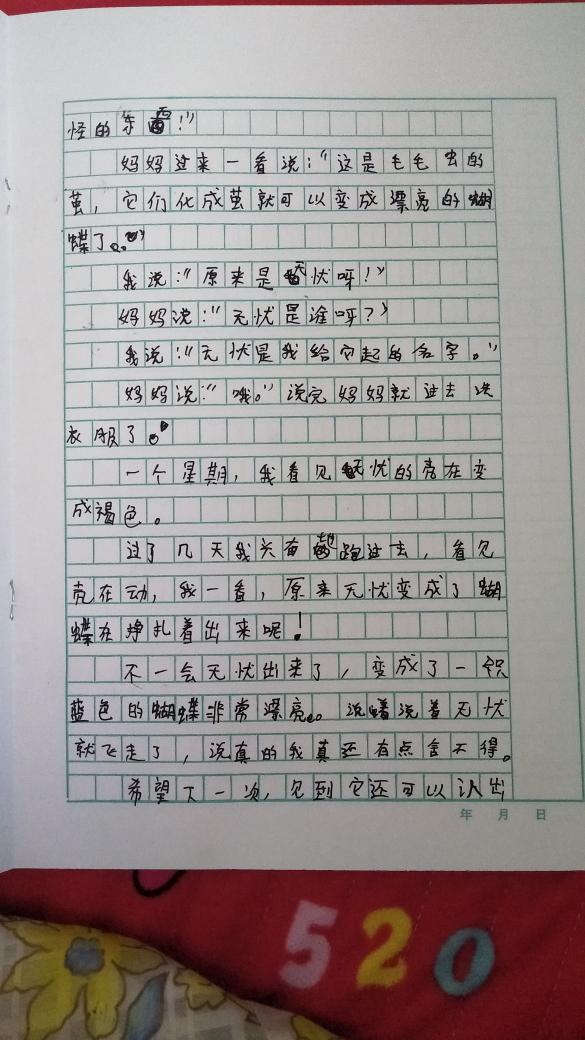 怪的东西！”
妈妈过来一看说：“这是毛毛虫的
茧，它们化成茧就可以变成漂亮的蝴
蝶了。”
我说：“原来是无忧呀！”
妈妈说：“无忧是谁呀？”
我说：“无忧是我给它起的名字。”
妈妈说：“哦。”说完妈妈就进去洗
衣服了。
一个星期，我看见无忧的壳在变
成褐色。
过了几天我兴奋地跑过去，看见
壳在动，我一看，原来无忧变成了蝴
蝶在挣扎着出来呢！
不一会无忧出来了，变成了一只
蓝色的蝴蝶非常漂亮。说着说着无忧
就飞走了，说真的我真还有点舍不得。
希望下一次，见到它还可以认出
年 月 日
520